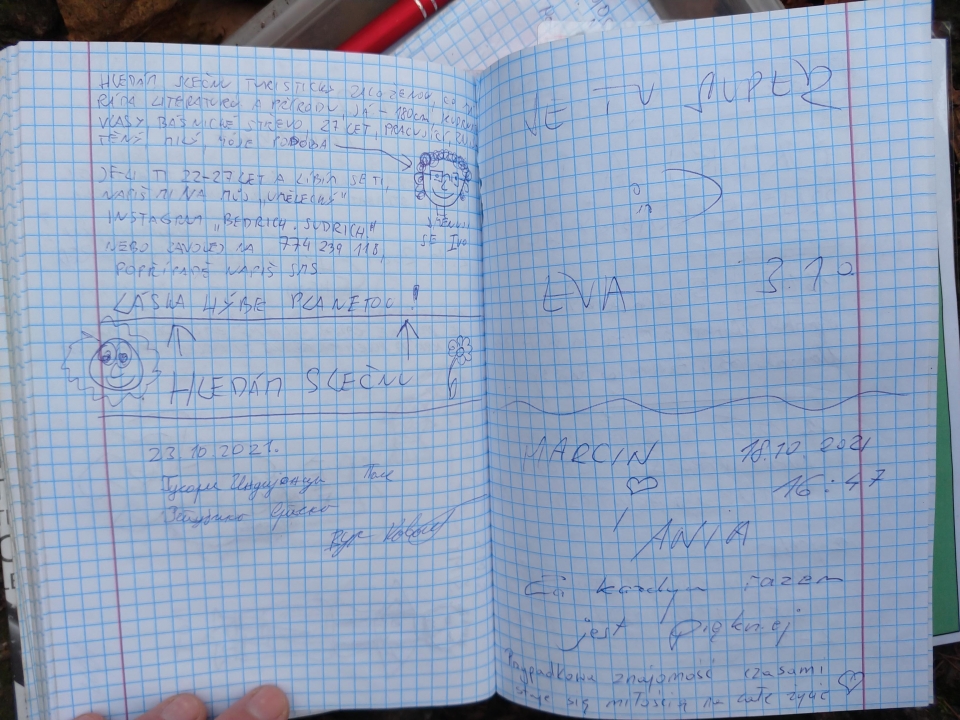 HLEDÁM SLEČNU TURISTICKY ZALOŽENOU, CO MÁ
RÁDA LITERATURU A PŘÍRODU. JÁ - 180cm,
VLASY BÁSNICKÉ STŘEVO, 27 LET,
MILÝ, MOJE PODOBA
JE-LI TI 22-27 LET A LÍBÍM SE TI,
NAPIŠ MI NA MŮJ „UMĚLECKÝ"
INSTAGRAM „BEDRICH.SUDRICH"
NEBO ZAVOLEJ NA 774 239 118,
POPŘÍPADĚ NAPIŠ SMS
SE
LÁSKA HÝBE PLANETOU!
HLEDÁM SLEČNU
23.10.2021.
JE TU SUPER
EVA 3.10
MARCIN 18.10.2021
16:47
ANIA
Za każdym razem
jest piękniej
Przypadkowa znajomość czasami
staje się miłością na całe życie